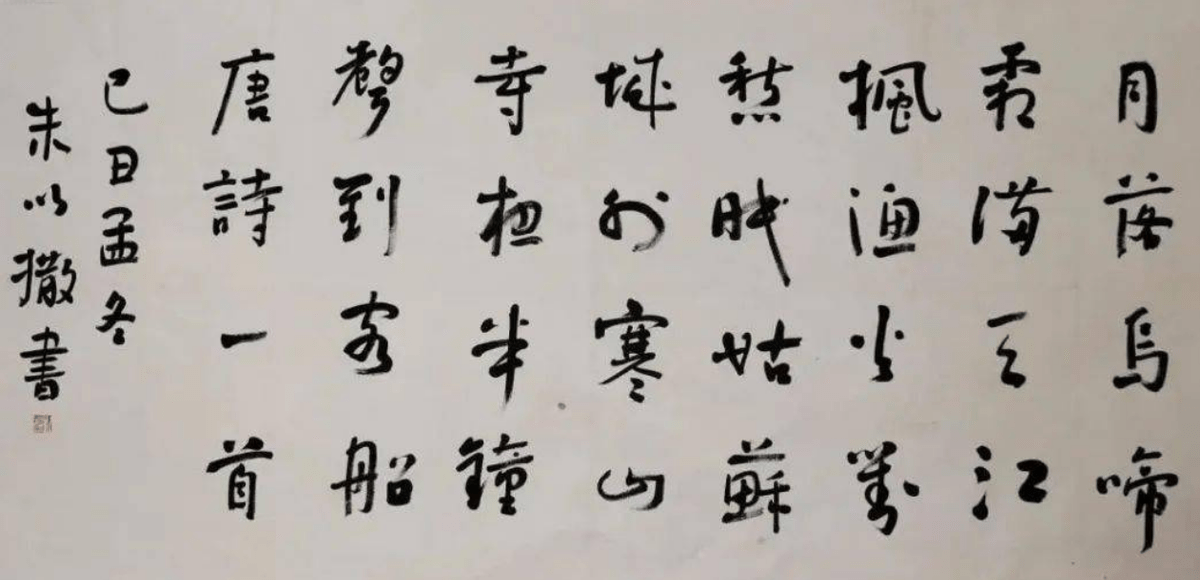 月落烏啼
霜滿天江
楓漁火對
愁眠姑蘇
城外寒山
寺夜半鐘
聲到客船
唐詩一首
己日孟冬
朱以撒書